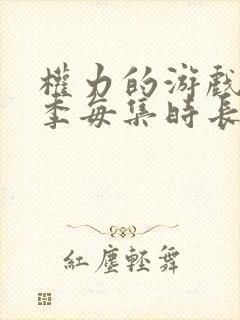 權力的游戲
季每集時長
紅塵輕舞